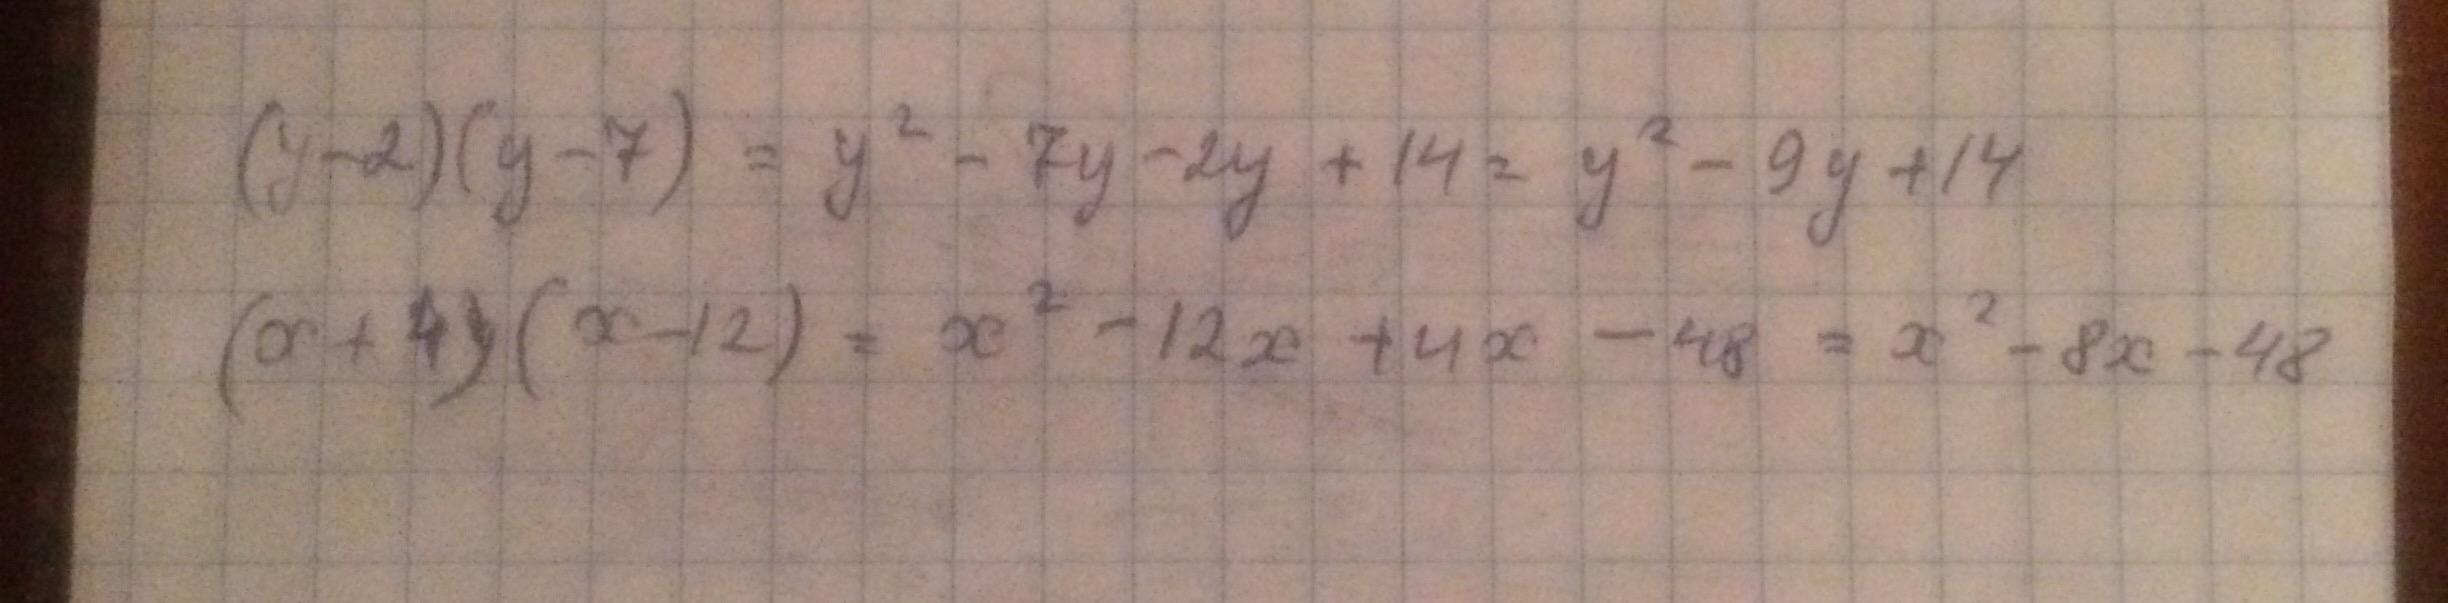 (y-2)(y-7) = y² - 7y - 2y + 14 = y² - 9y + 14
(x+4)(x-12) = x² - 12x + 4x - 48 = x² - 8x - 48